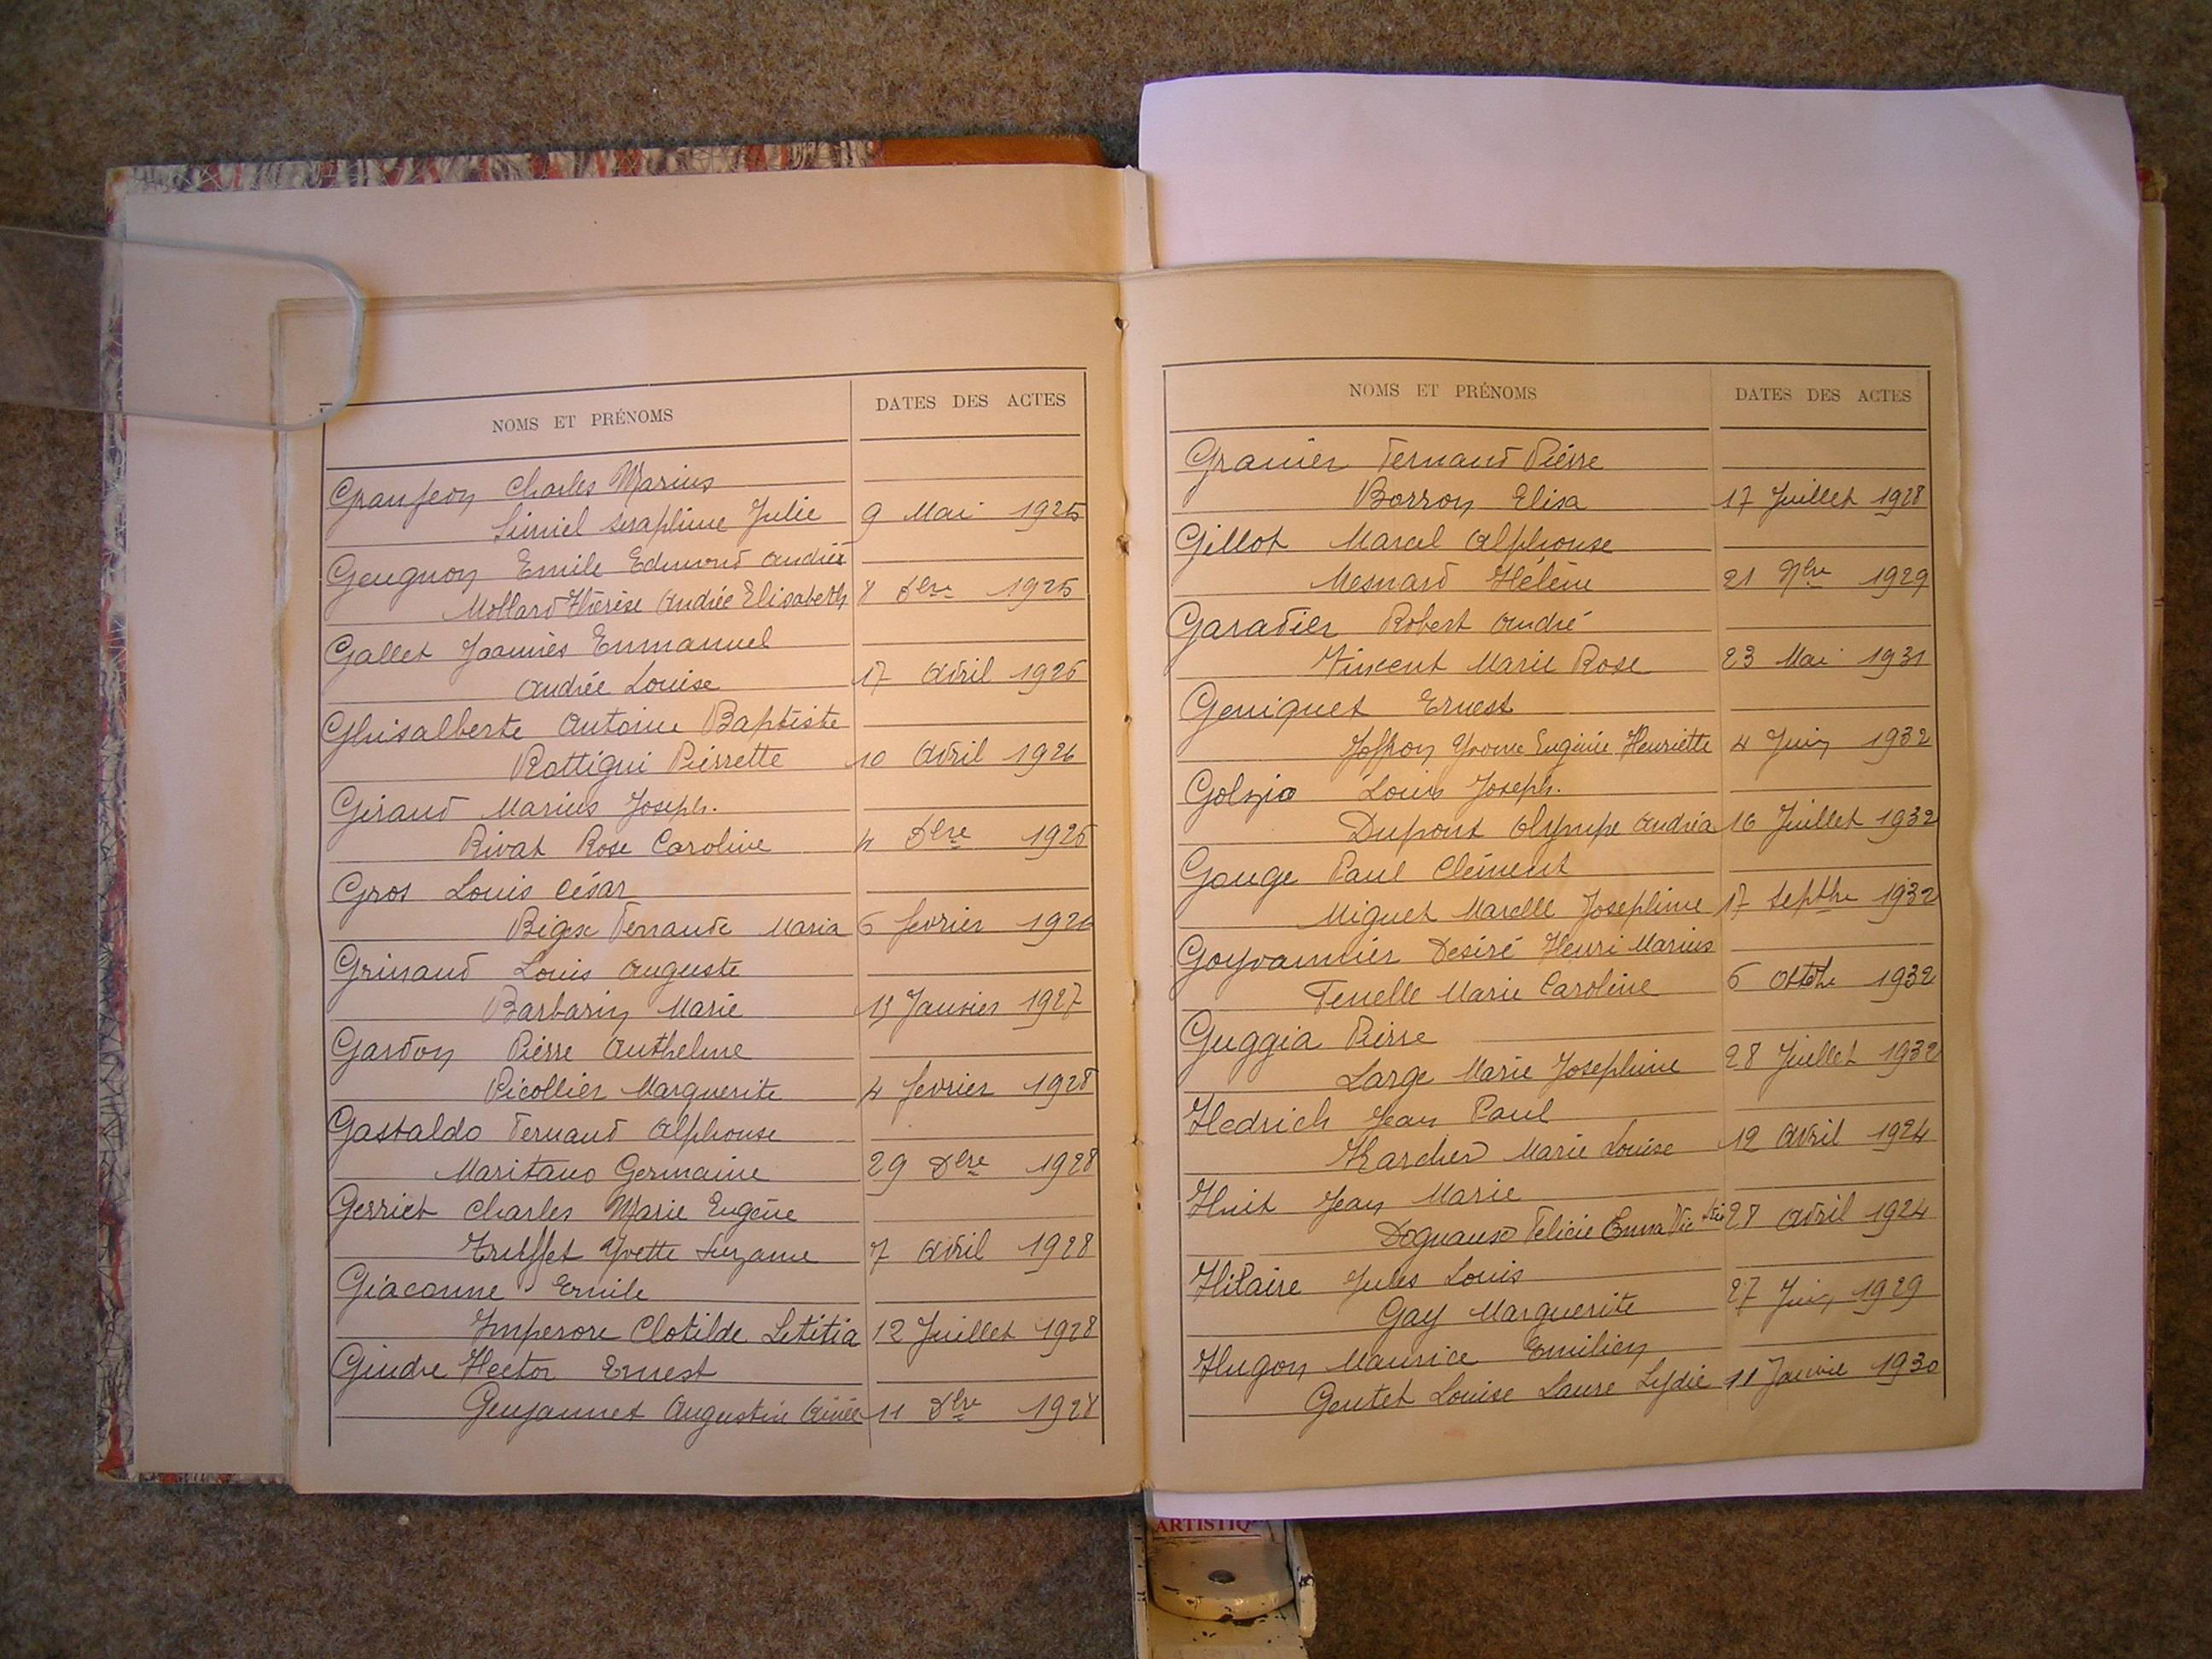 NOMS ET PRÉNOMS
DATES DES ACTES
Granjeon Charles Marius
Simiel Seraphine Julie 9 Mai 1925
Geugnon Emile Edmond André
Mollard Thérèse Andrée Elisabeth 8 Dbre 1925
Gallet Joannès Emmanuel
Andrée Louise 17 Avril 1926
Ghisalberte Antoine Baptiste
Rottigni Pierrette 10 Avril 1926
Giraud Marius Joseph.
Rivat Rose Caroline 4 Dbre 1926
Gros Louis César
Bigex Fernande Maria 6 fevrier 1926
Grinand Louis Auguste
Barbarin Marie Janvier 1927
Gardon Pierre Anthelme
Picollier Marguerite 4 fevrier 1928
Gastaldo Fernand Alphonse
Maritano Germaine 29 Dbre 1928
Gerriet Charles Marie Eugène
Truffet Yvette Suzanne 7 Avril 1928
Giaconne Emile
Imperore Clotilde Letitia 12 Juillet 1928
Gindre Hector Ernest
Genjannet Augustin Aimée 11 Dbre 1928
NOMS ET PRÉNOMS
DATES DES ACTES
Granier Fernand Pierre
Borron Elisa 17 Juillet 1928
Gillot Marcel Alphonse
Mesnard Hélène 21 9bre 1929
Garadier Robert André
Vincent Marie Rose 23 Mai 1931
Geniquet Ernest
Joffron Yvonne Eugénie Henriette 4 Juin 1932
Golzio Louis Joseph.
Dupont Olympe Andréa 16 Juillet 1932
Gouge Paul Clément
Miguet Marcelle Josephine 17 Septbre 1932
Goyvannier Desiré Henri Marius
Tenelle Marie Caroline 6 1932
Guggia Pierre
Large Marie Josephine 28 Juillet 1932
Hedrich Jean Paul
Karcher Marie Louise 12 Avril 1924
Huit Jean Marie
Dognaux Felicie Emma 28 Avril 1924
Hilaire Jules Louis
Gay Marguerite 27 Juin 1929
Hugon Maurice Emilien
Gentet Louise Laure Lydie 11 Janvie 1930
ARTISTIQ